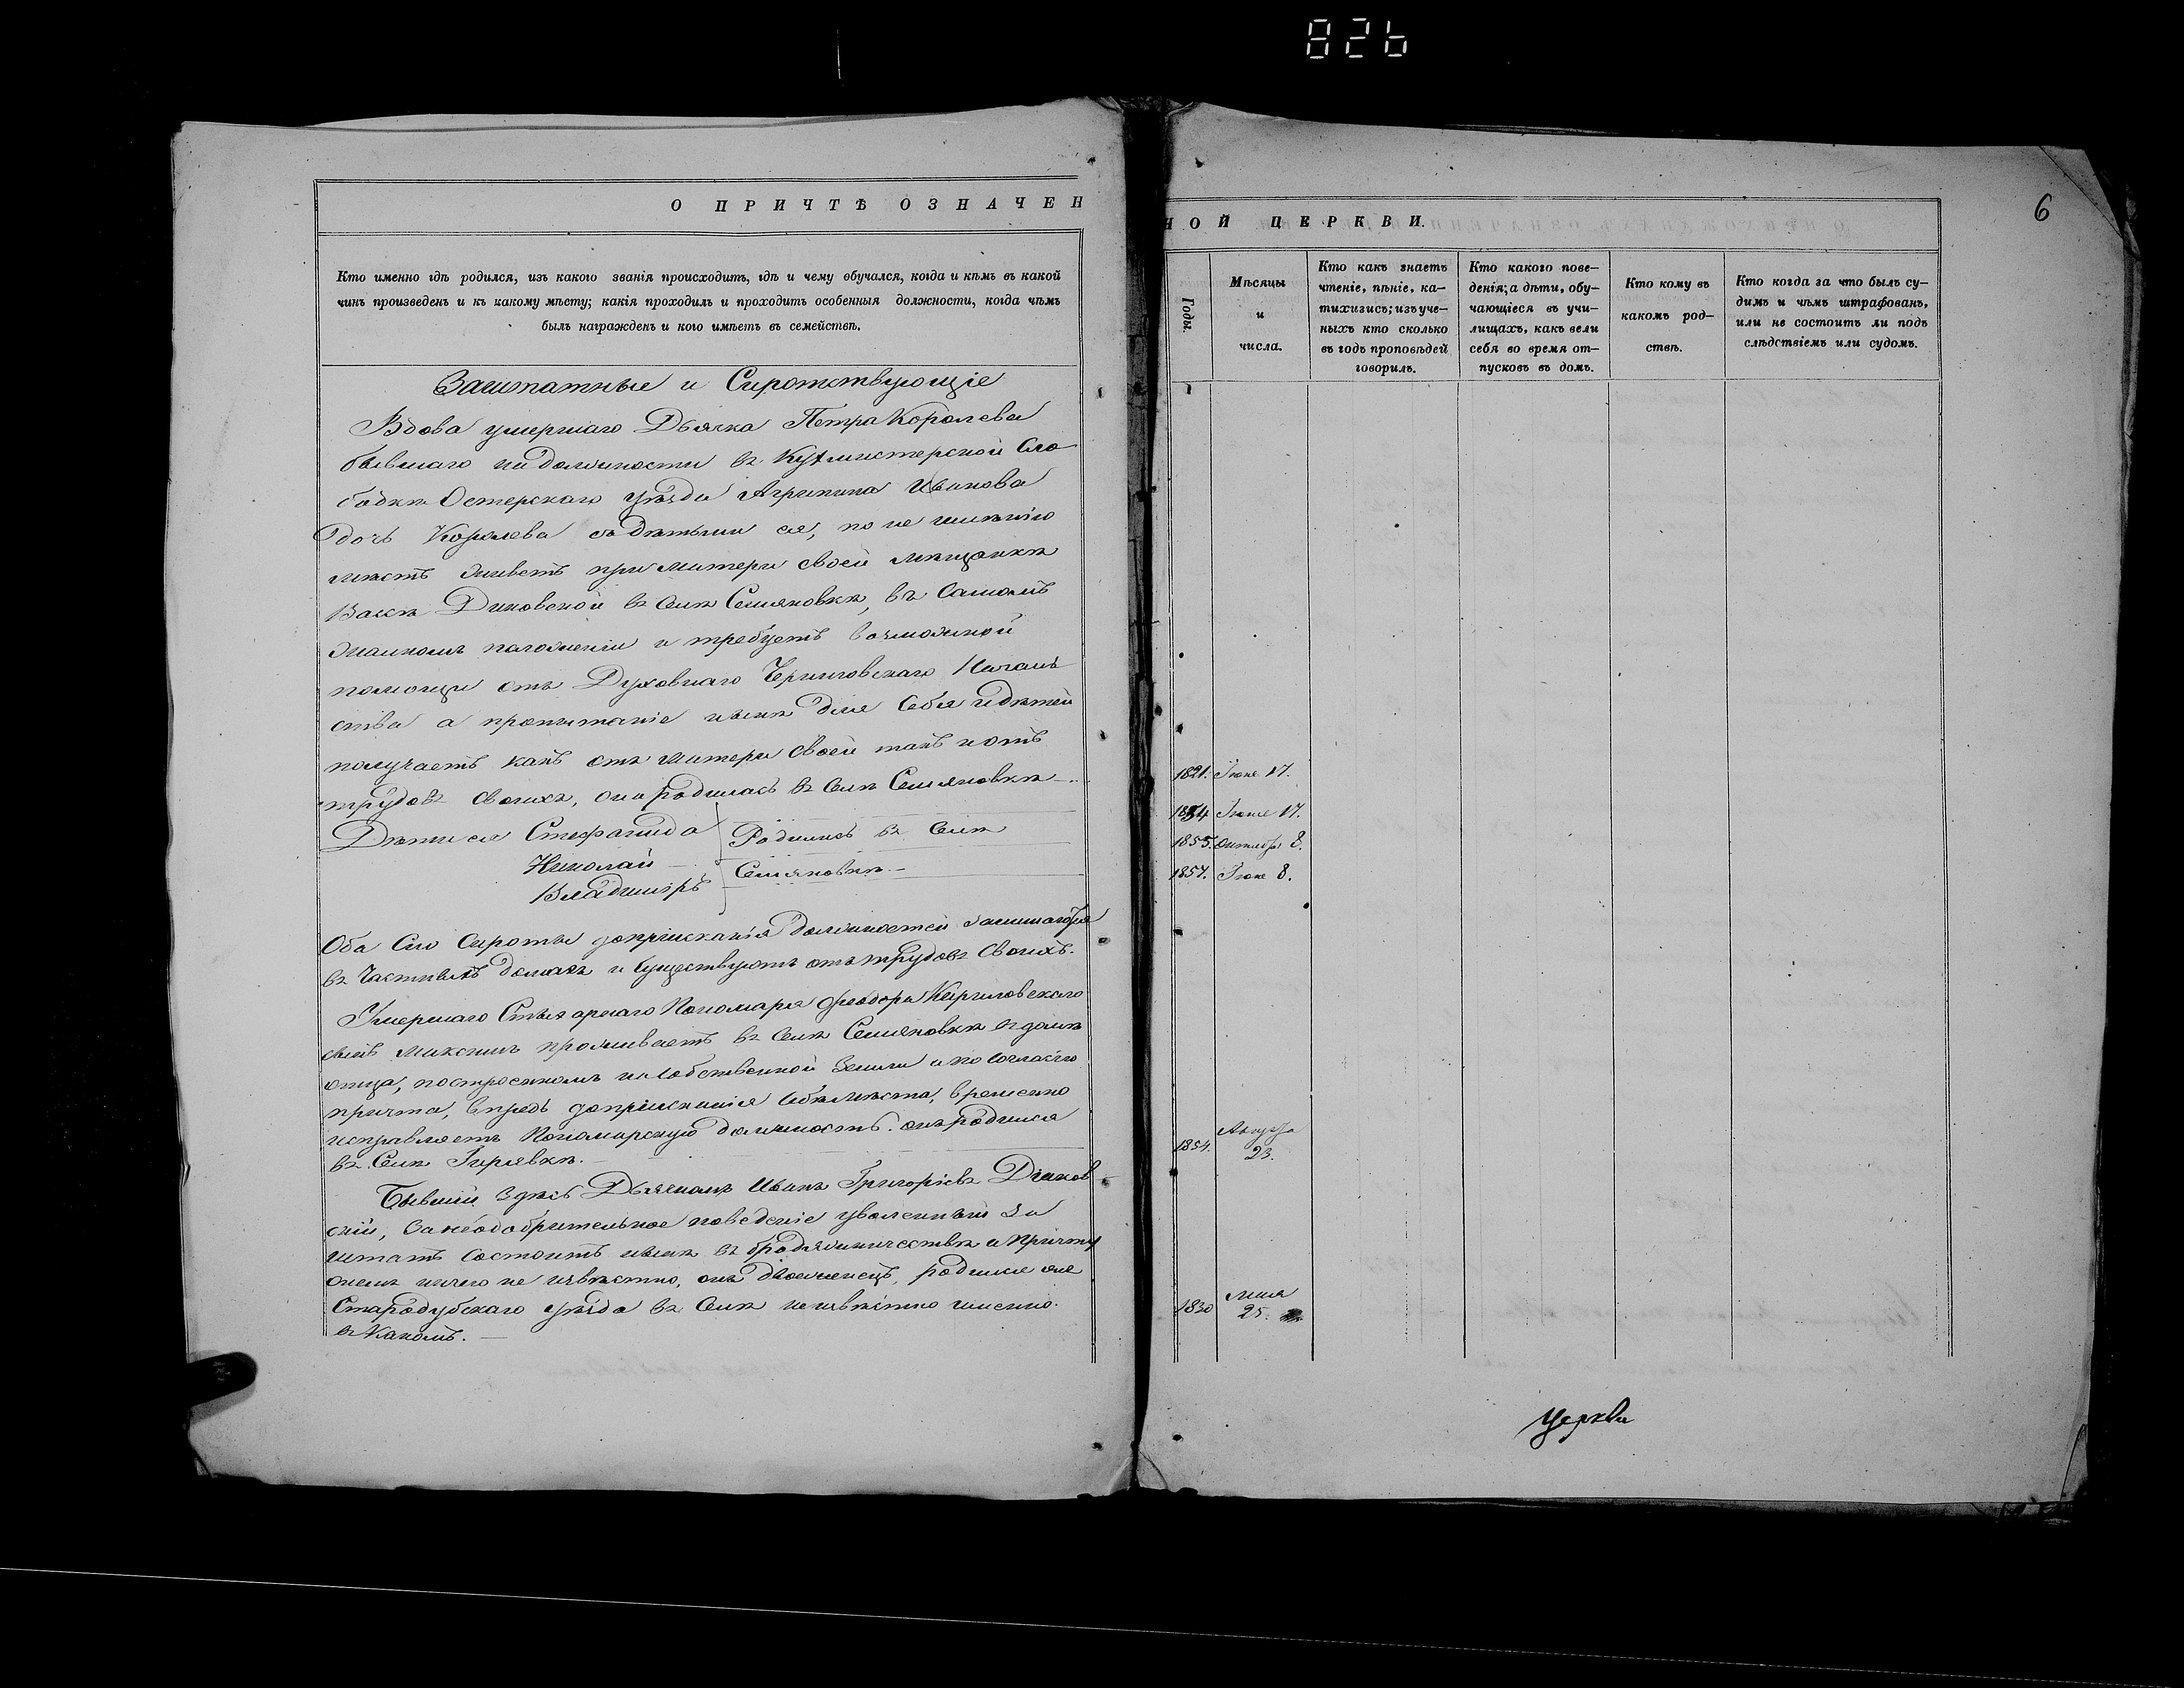 826
6
О ПРИЧТѢ ОЗНАЧЕН
НОЙ ЦЕРКВИ.
Кто именно гдѣ родился, изъ какого званія происходитъ, гдѣ и чему обучался, когда и кѣмъ въ какой
чинъ произведенъ и къ какому мѣсту; какія проходилъ и проходитъ особенныя должности, когда чѣмъ
былъ награжденъ и кого имѣетъ въ семействѣ.
Годы.
Мѣсяцы
и
числа.
Кто какъ знаетъ
чтеніе, пѣніе, ка-
тихизисъ; изъ уче-
ныхъ кто сколько
въ годъ проповѣдей
говорилъ.
Кто какого пове-
денія; а дѣти, обу-
чающіеся въ учи-
лищахъ, какъ вели
себя во время от-
пусковъ въ домъ.
Кто кому въ
какомъ род-
ствѣ.
Кто когда за что былъ су-
димъ и чѣмъ штрафованъ,
или не состоитъ ли подъ
слѣдствіемъ или судомъ.
Заштатные и Сиротствующіе
Вдова умершаго Дьячка Петра Королева
бывшаго на должности въ Кухмистерской Сло
бодкѣ Остерскаго уѣзда Агрипина Иванова
дочь Королева съ дѣтьми ея, по не имѣнію
мѣстъ живетъ при матери своей мѣщанкѣ
въ Селѣ Семяновкѣ, въ Самомъ
положеніи и требуетъ возможной
помощи отъ Духовнаго Черниговскаго Началь
ства а пропитаніе нынѣ для Себя и дѣтей
получаетъ какъ отъ матери своей такъ и отъ
трудовъ своихъ, она родилась въ Селѣ Семяновкѣ
1821. Іюня 17.
Дѣти ея Стефанида Родились въ Селѣ
1854 Іюня 17.
Николай Семяновкѣ
1855. Октября 8.
Владиміръ
1857. Іюня 8.
Оба Сіи Сироты до пріисканія должностей занимаются
въ частныхъ домахъ и существуютъ отъ трудовъ Своихъ.
Умершаго Пономаря Феодора Кириловскаго
сынъ Максимъ проживаетъ въ Селѣ Семяновкѣ въ домѣ
отца, построенномъ на собственной Земли и по согласію
причта, впредь до пріисканія себѣ мѣста, временно
исправляетъ Пономарскую должность. онъ родился
въ Селѣ Гирявкѣ.
1834. Августа
23.
Бывшій здѣсь Дьячкомъ Иванъ Григорьевъ Діаков
скій, за неодобрительное поведеніе уволенный За
штатъ состоитъ нынѣ въ бродяжничествѣ и Причту
о немъ ничего не извѣстно, онъ родился
Стародубскаго уѣзда въ Селѣ неизвѣстно именно
въ какомъ.
1830 Мая
25.
Церкви